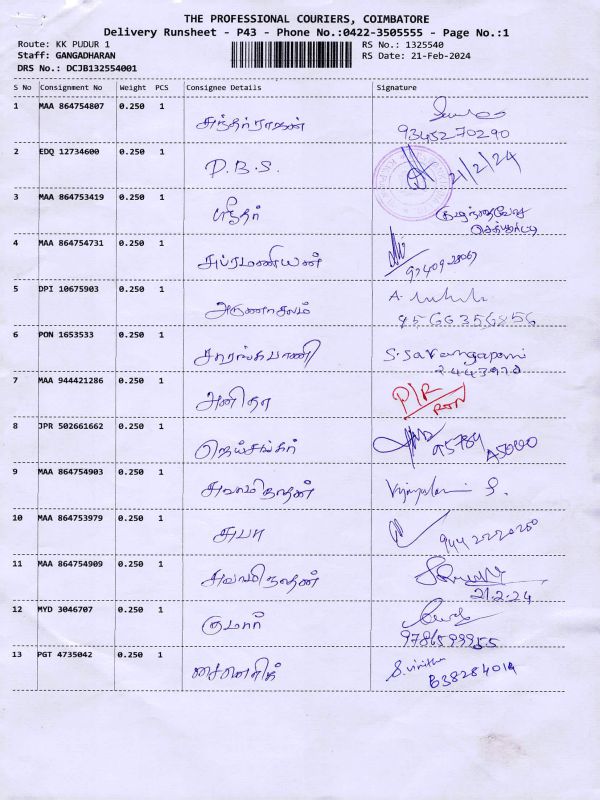 THE PROFESSIONAL COURIERS, COIMBATORE
Delivery Runsheet - P43 - Phone No.:0422-3505555 - Page No.:1
Route: KK PUDUR 1
Staff: GANGADHARAN
DRS No.: DCJB132554001
RS No.: 1325540
RS Date: 21-Feb-2024
S No Consignment No Weight PCS Consignee Details Signature
1 MAA 864754807 0.250 1
9345270290
2 EDQ 12734600 0.250 1 D.B.S. 21/2/24
3 MAA 864753419 0.250 1 ஸ்ரீதர்
4 MAA 864754731 0.250 1 சுப்ரமணியன்
5 DPI 10675903 0.250 1 அருணாசலம்
9566356856
6 PON 1653533 0.250 1 சாரங்கபாணி S.Sarangapani
2443970
7 MAA 944421286 0.250 1 அனிதா P/R
RTN
8 JPR 502661662 0.250 1 ஜெய்சங்கர்
9 MAA 864754903 0.250 1 சுவாமிநாதன்
10 MAA 864753979 0.250 1 சுபா
11 MAA 864754909 0.250 1 சுவாமிநாதன்
21.2.24
12 MYD 3046707 0.250 1 குமார்
9786599955
13 PGT 4735042 0.250 1 S.vinitha